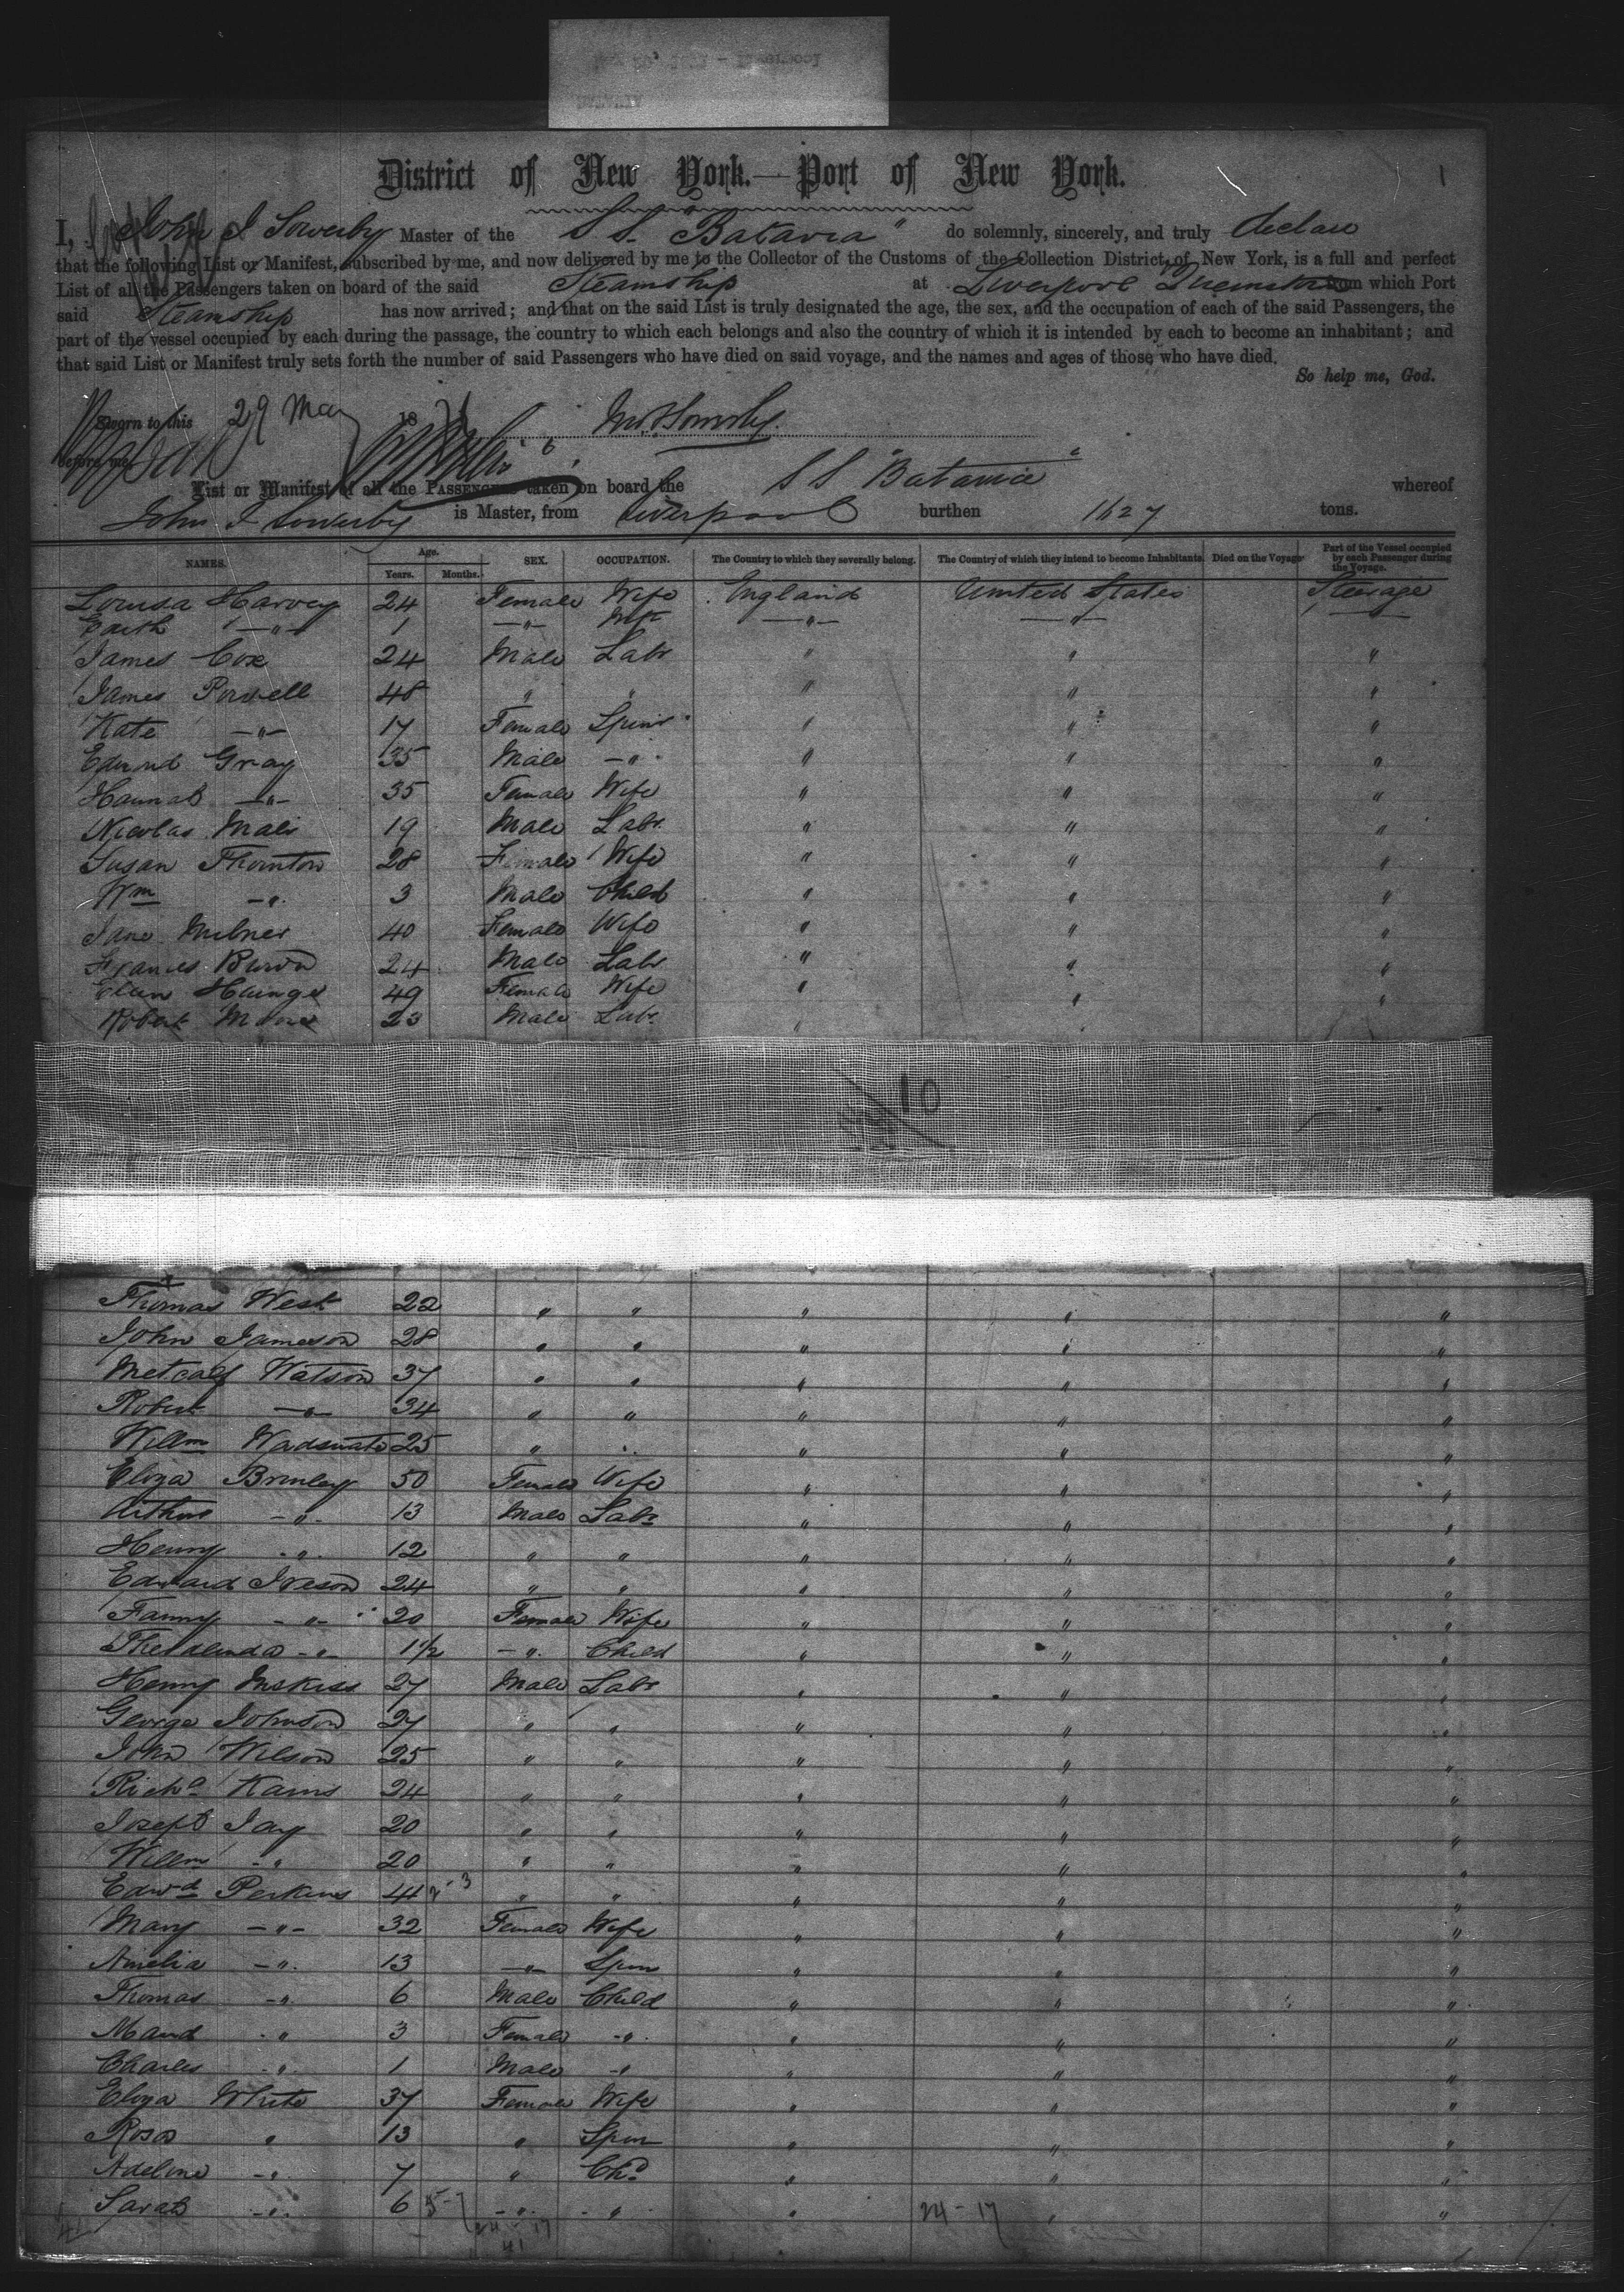 District of New York.—Port of New York.
1
I, John I Sowerby Master of the S S. "Batavia" do solemnly, sincerely, and truly declare
that the following List or Manifest, subscribed by me, and now delivered by me to the Collector of the Customs of the Collection District of New York, is a full and perfect
List of all the Passengers taken on board of the said Steamship at Liverpool from which Port
said Steamship has now arrived; and that on the said List is truly designated the age, the sex, and the occupation of each of the said Passengers, the
part of the vessel occupied by each during the passage, the country to which each belongs and also the country of which it is intended by each to become an inhabitant; and
that said List or Manifest truly sets forth the number of said Passengers who have died on said voyage, and the names and ages of those who have died.
So help me, God.
Sworn to this 29 May 18
before me
List or Manifest of all the PASSENGERS taken on board the S S "Batavia" whereof
John I Sowerby is Master, from Liverpool burthen 1627 tons.
NAMES. Age. Years. Months. SEX. OCCUPATION. The Country to which they severally belong. The Country of which they intend to become Inhabitants. Died on the Voyage Part of the Vessel occupied by each Passenger during the Voyage.
Louisa Harvey 24 Female Wife England United States Steerage
Edith —"— 1 —"— Inft —"— —"— —
James Cox 24 Male Labr " " "
James Powell 48 " " " " "
Kate —"— 17 Female Spins " " "
Edward Gray 35 Male —"— " " "
Hannah —"— 35 Female Wife " " "
Nicolas Malis 19 Male Labr " " "
Susan Thornton 28 Female Wife " " "
Wm —" 3 Male Child " " "
Jane Milner 40 Female Wife " " "
Frances 24 Male Labr " " "
Ellen 49 Female Wife " " "
Robert Moore 23 Male Labr "
10
Thomas West 22 " " " " "
John Jameson 28 " " " " "
Metcalf Watson 37 " " " " "
Robert —"— 34 " " " " "
Willm 25 " " " " "
Eliza Brinley 50 Female Wife " " "
Arthur —"— 13 Male Labr " " "
Henry —"— 12 " " " " "
Edward Iveson 24 " " " " "
Fanny —"— 20 Female Wife " " "
—"— 1 1/2 —" Child " " "
Henry Inskiss 27 Male Labr " " "
George Johnson 27 " " " " "
John Wilson 25 " " " " "
Richd Kains 24 " " " " "
Joseph Jay 20 " " " " "
Willm —" 20 " " " " "
Edwd Perkins 44 " " " " "
Mary —"— 32 Female Wife " " "
Amelia —" 13 —"— Spin " " "
Thomas —" 6 Male Child " " "
Maud —" 3 Female —" " " "
Charles —" 1 Male —" " " "
Eliza White 37 Female Wife " " "
Rosa " 13 " Spin " " "
Adeline —" 7 " Chd " " "
Sarah —" 6 —" —" " 24-17 " "
24-17
41